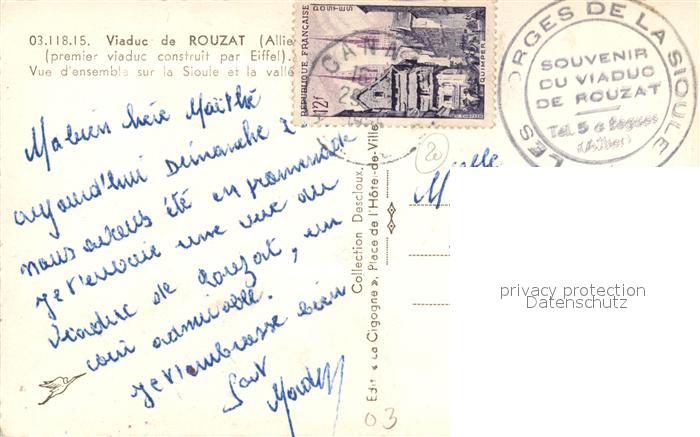 03.118.15. Viaduc de ROUZAT (Allie
(premier viaduc construit par Eiffel).
Vue d'ensemble sur la Sioule et la vallé
Ma bien chère Maïthé
aujourd'hui Dimanche
nous avons été en promenade
je t'envoie une vue du
Viaduc de Rouzat, un
coin admirable.
je t'embrasse bien
fort
RÉPUBLIQUE FRANÇAISE
POSTES
12F
QUIMPER
CANN
GORGES DE LA SIOULE
SOUVENIR
DU VIADUC
DE ROUZAT
Tél. 5 à Bègues
(Allier)
LES
20
Collection Descloux,
Edit. « La Cigogne », Place de l'Hôtel-de-Ville
privacy protection
Datenschutz
03